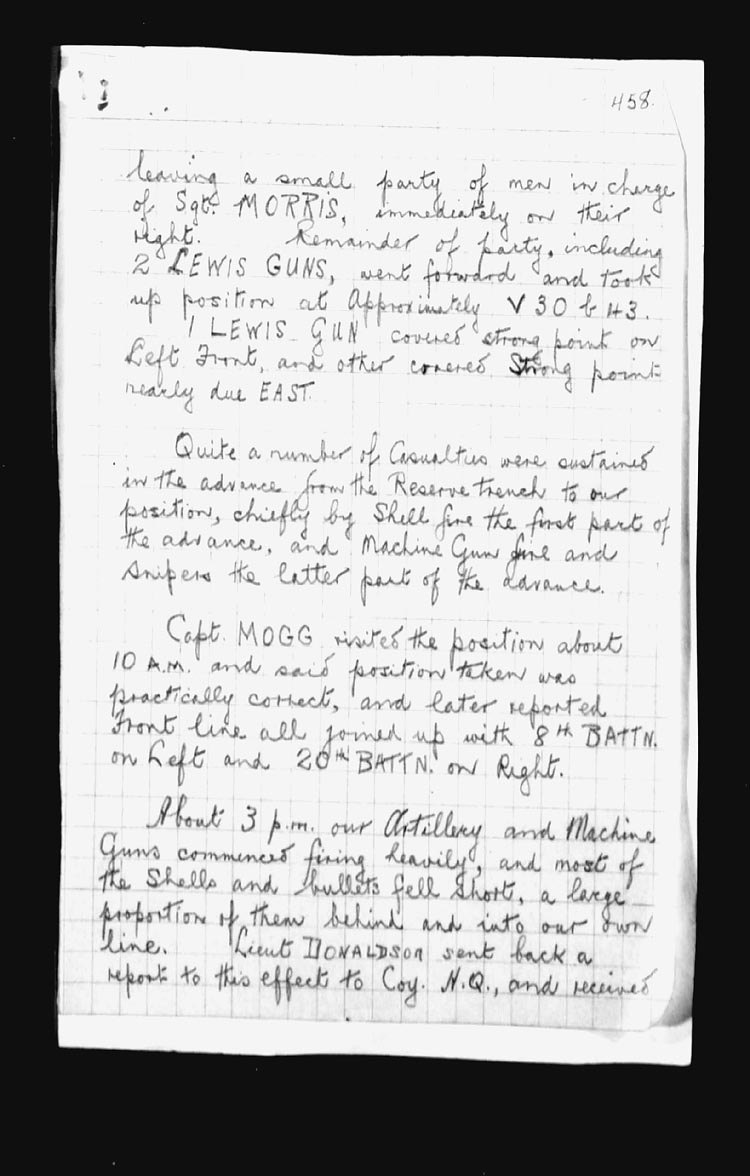 458.
leaving a small party of men in charge
of Sgt. MORRIS, immediately on their
right. Remainder of party, including
2 LEWIS GUNS, went forward and took
up position at Approximately V 30 b 43.
1 LEWIS GUN covered strong point on
Left Front, and other covered Strong point
nearly due EAST.
Quite a number of Casualties were sustained
in the advance from the Reserve trench to our
position, chiefly by Shell fire the first part of
the advance, and Machine Gun fire and
Snipers the latter part of the advance.
Capt. MOGG visited the position about
10 A.M. and said position taken was
practically correct, and later reported
Front line all joined up with 8TH BATTN.
on Left and 20TH BATTN. on Right.
About 3 p.m. our Artillery and Machine
Guns commenced firing heavily, and most of
the Shells and bullets fell short, a large
proportion of them behind and into our own
line. Lieut DONALDSON sent back a
report to this effect to Coy. H.Q., and received